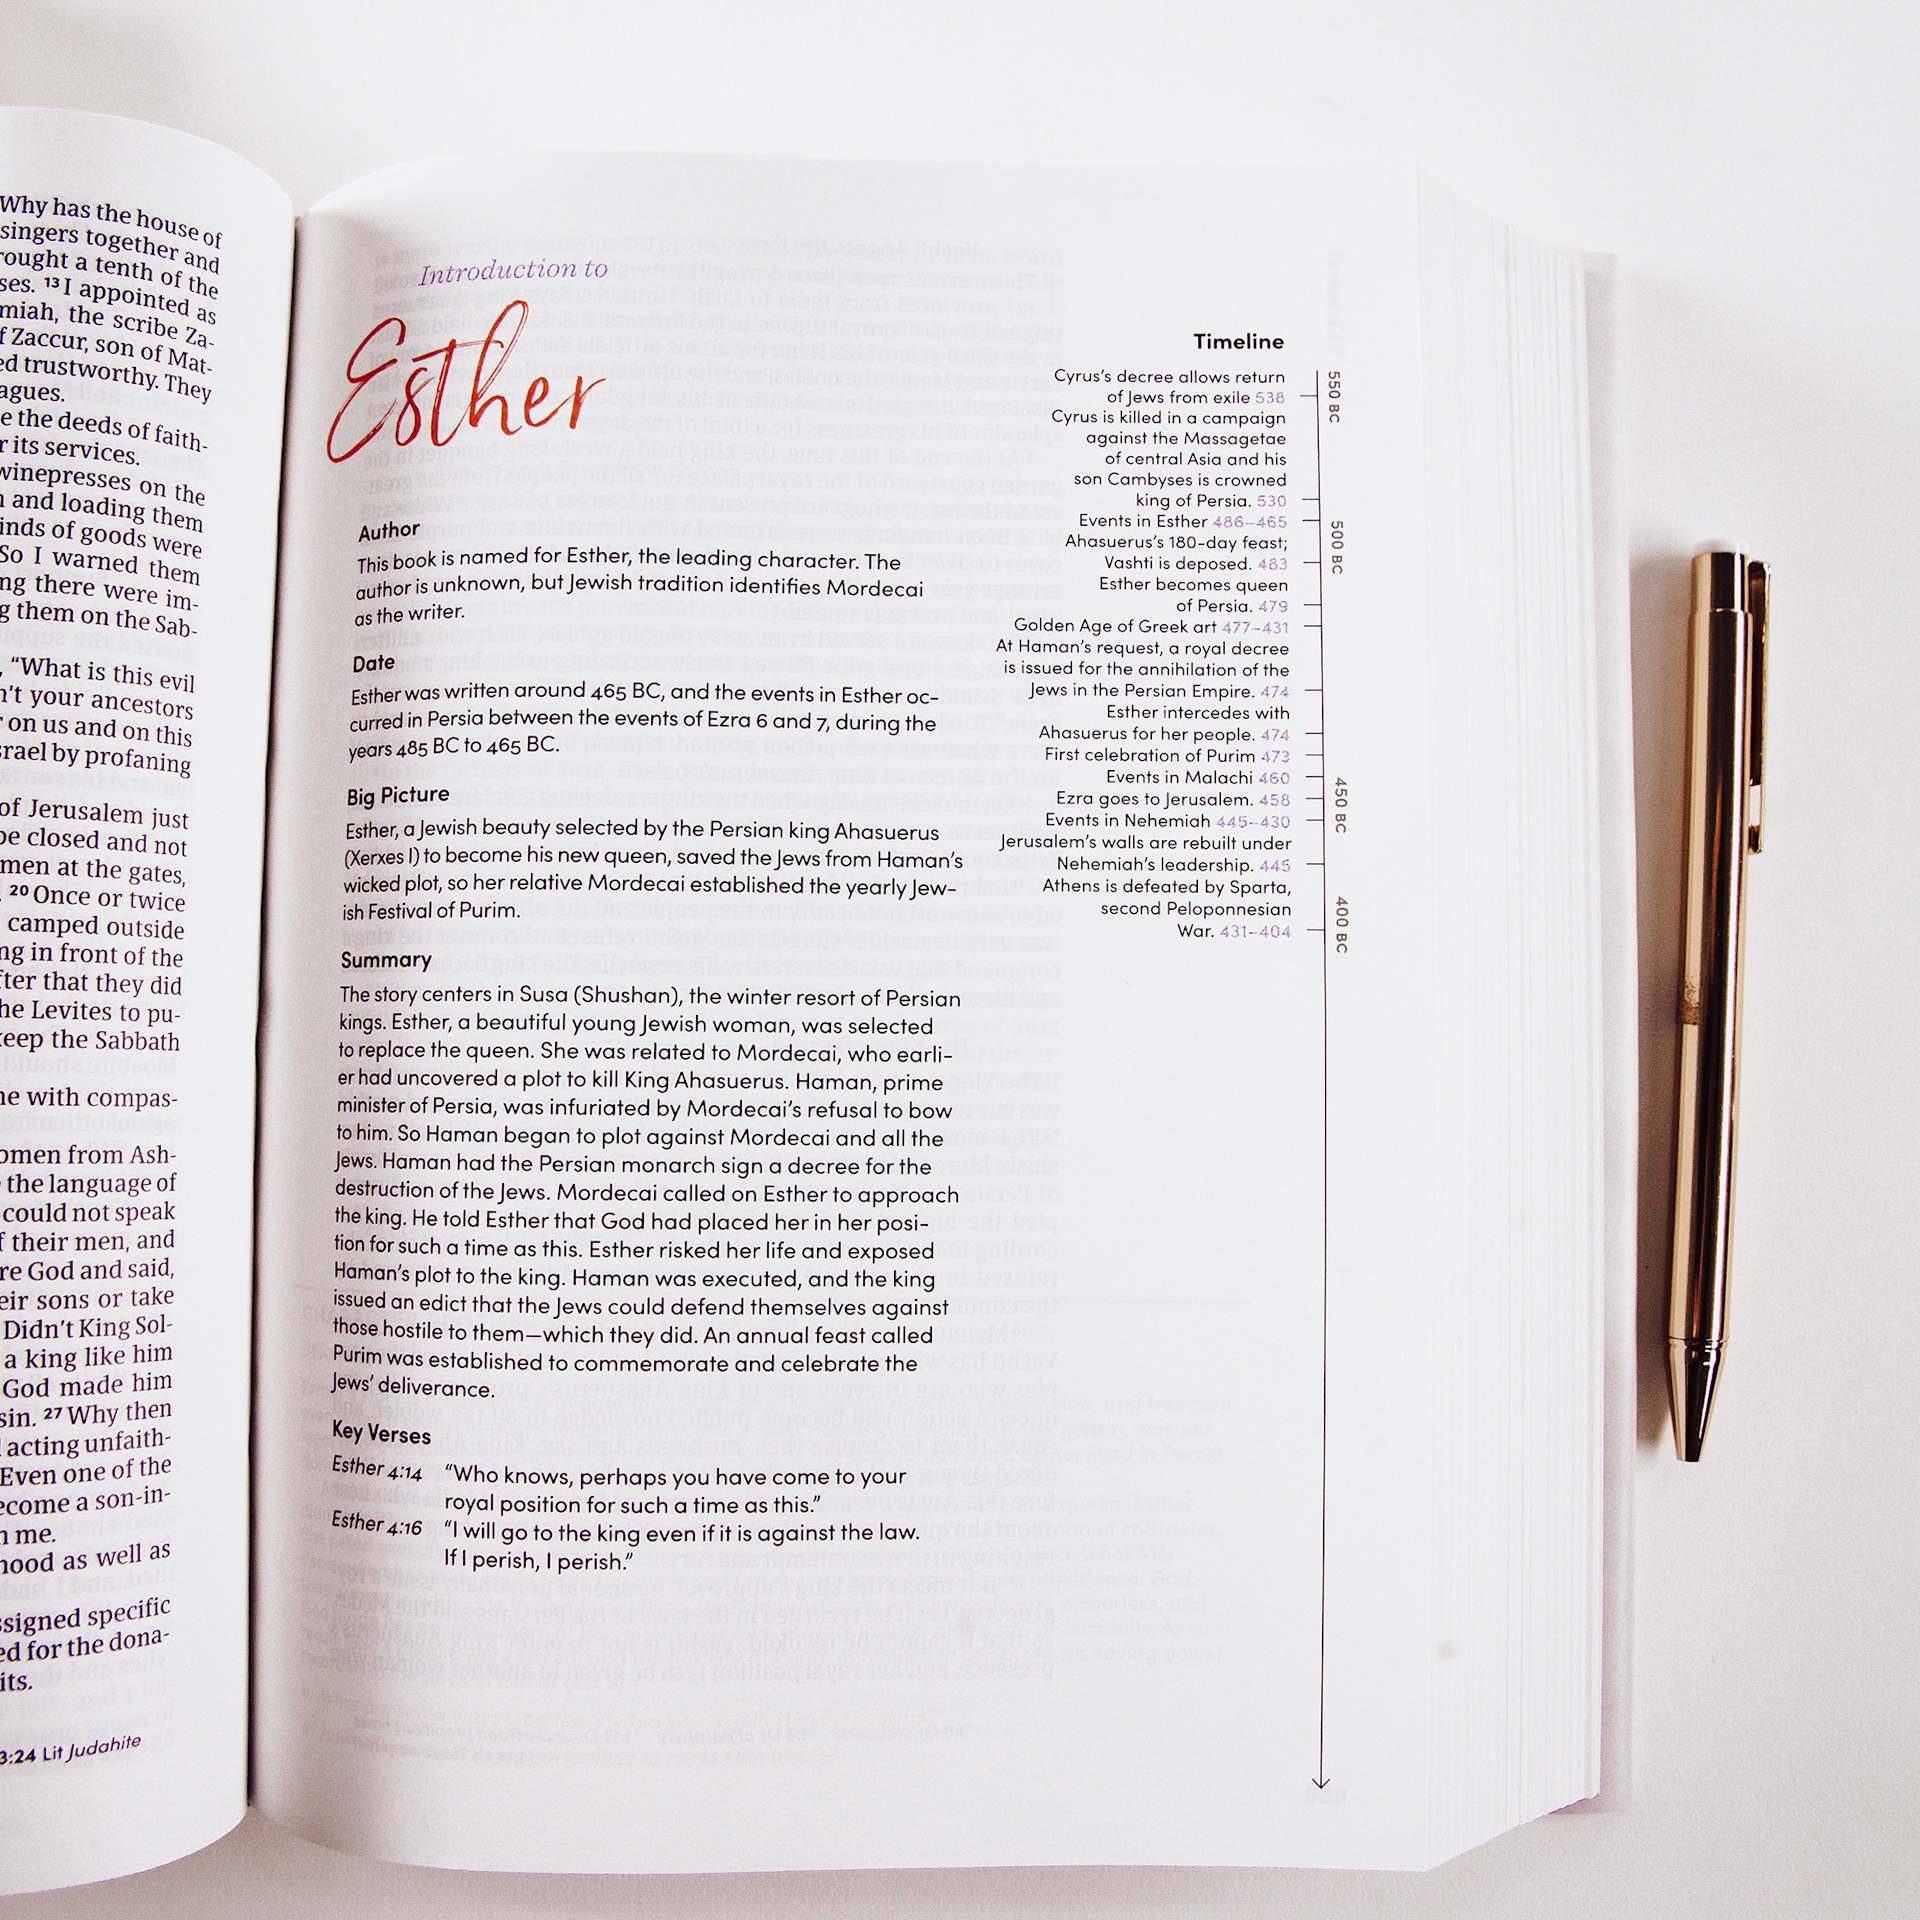 Why has the house of
singers together and
rought a tenth of the
ses. 13 I appointed as
miah, the scribe Za-
f Zaccur, son of Mat-
ed trustworthy. They
agues.
e the deeds of faith-
r its services.
winepresses on the
n and loading them
inds of goods were
So I warned them
ng there were im-
g them on the Sab-
, “What is this evil
n’t your ancestors
r on us and on this
srael by profaning
of Jerusalem just
be closed and not
men at the gates,
. 20 Once or twice
camped outside
ng in front of the
fter that they did
he Levites to pu-
keep the Sabbath
ne with compas-
omen from Ash-
the language of
could not speak
f their men, and
re God and said,
eir sons or take
Didn’t King Sol-
a king like him
God made him
sin. 27 Why then
l acting unfaith-
Even one of the
ecome a son-in-
m me.
hood as well as
ssigned specific
ed for the dona-
its.
3:24 Lit Judahite
Introduction to
Esther
Author
This book is named for Esther, the leading character. The
author is unknown, but Jewish tradition identifies Mordecai
as the writer.
Date
Esther was written around 465 BC, and the events in Esther oc-
curred in Persia between the events of Ezra 6 and 7, during the
years 485 BC to 465 BC.
Big Picture
Esther, a Jewish beauty selected by the Persian king Ahasuerus
(Xerxes I) to become his new queen, saved the Jews from Haman’s
wicked plot, so her relative Mordecai established the yearly Jew-
ish Festival of Purim.
Summary
The story centers in Susa (Shushan), the winter resort of Persian
kings. Esther, a beautiful young Jewish woman, was selected
to replace the queen. She was related to Mordecai, who earli-
er had uncovered a plot to kill King Ahasuerus. Haman, prime
minister of Persia, was infuriated by Mordecai’s refusal to bow
to him. So Haman began to plot against Mordecai and all the
Jews. Haman had the Persian monarch sign a decree for the
destruction of the Jews. Mordecai called on Esther to approach
the king. He told Esther that God had placed her in her posi-
tion for such a time as this. Esther risked her life and exposed
Haman’s plot to the king. Haman was executed, and the king
issued an edict that the Jews could defend themselves against
those hostile to them—which they did. An annual feast called
Purim was established to commemorate and celebrate the
Jews’ deliverance.
Key Verses
Esther 4:14 “Who knows, perhaps you have come to your
royal position for such a time as this.”
Esther 4:16 “I will go to the king even if it is against the law.
If I perish, I perish.”
Timeline
Cyrus’s decree allows return
of Jews from exile 538
Cyrus is killed in a campaign
against the Massagetae
of central Asia and his
son Cambyses is crowned
king of Persia. 530
Events in Esther 486–465
Ahasuerus’s 180-day feast;
Vashti is deposed. 483
Esther becomes queen
of Persia. 479
Golden Age of Greek art 477–431
At Haman’s request, a royal decree
is issued for the annihilation of the
Jews in the Persian Empire. 474
Esther intercedes with
Ahasuerus for her people. 474
First celebration of Purim 473
Events in Malachi 460
Ezra goes to Jerusalem. 458
Events in Nehemiah 445–430
Jerusalem’s walls are rebuilt under
Nehemiah’s leadership. 445
Athens is defeated by Sparta,
second Peloponnesian
War. 431–404
550 BC
500 BC
450 BC
400 BC